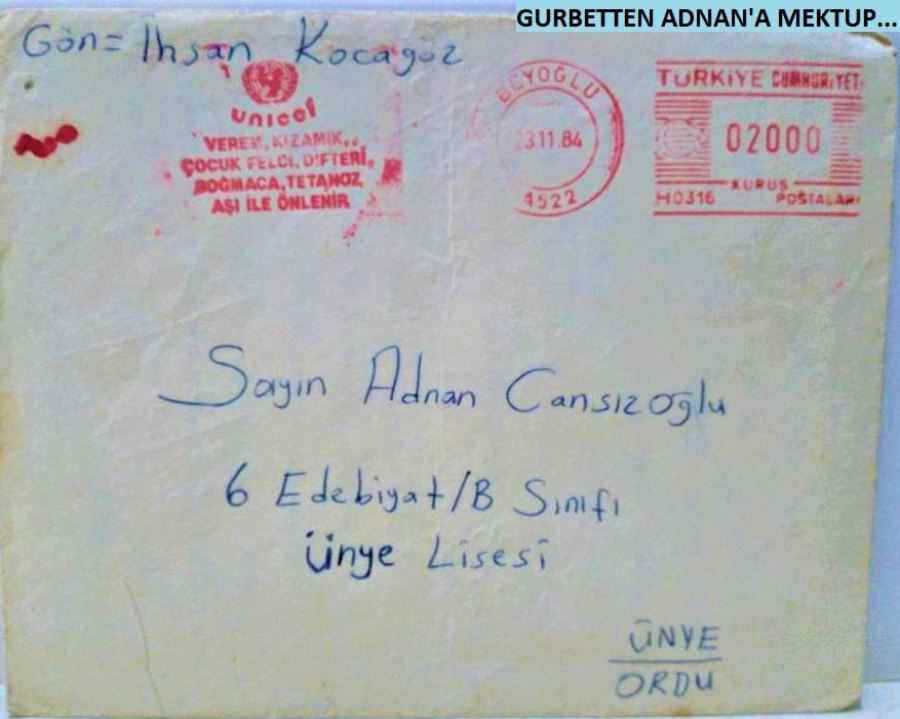 GURBETTEN ADNAN'A MEKTUP...
Gön= İhsan Kocagöz
unicef
VEREM, KIZAMIK,
ÇOCUK FELCİ, DİFTERİ,
BOĞMACA, TETANOZ
AŞI İLE ÖNLENİR
BEYOĞLU
23.11.84
4522
TÜRKİYE CUMHURİYETİ
02000
KURUŞ
H0316 POSTALARI
Sayın Adnan Cansızoğlu
6 Edebiyat/B Sınıfı
Ünye Lisesi
ÜNYE
ORDU